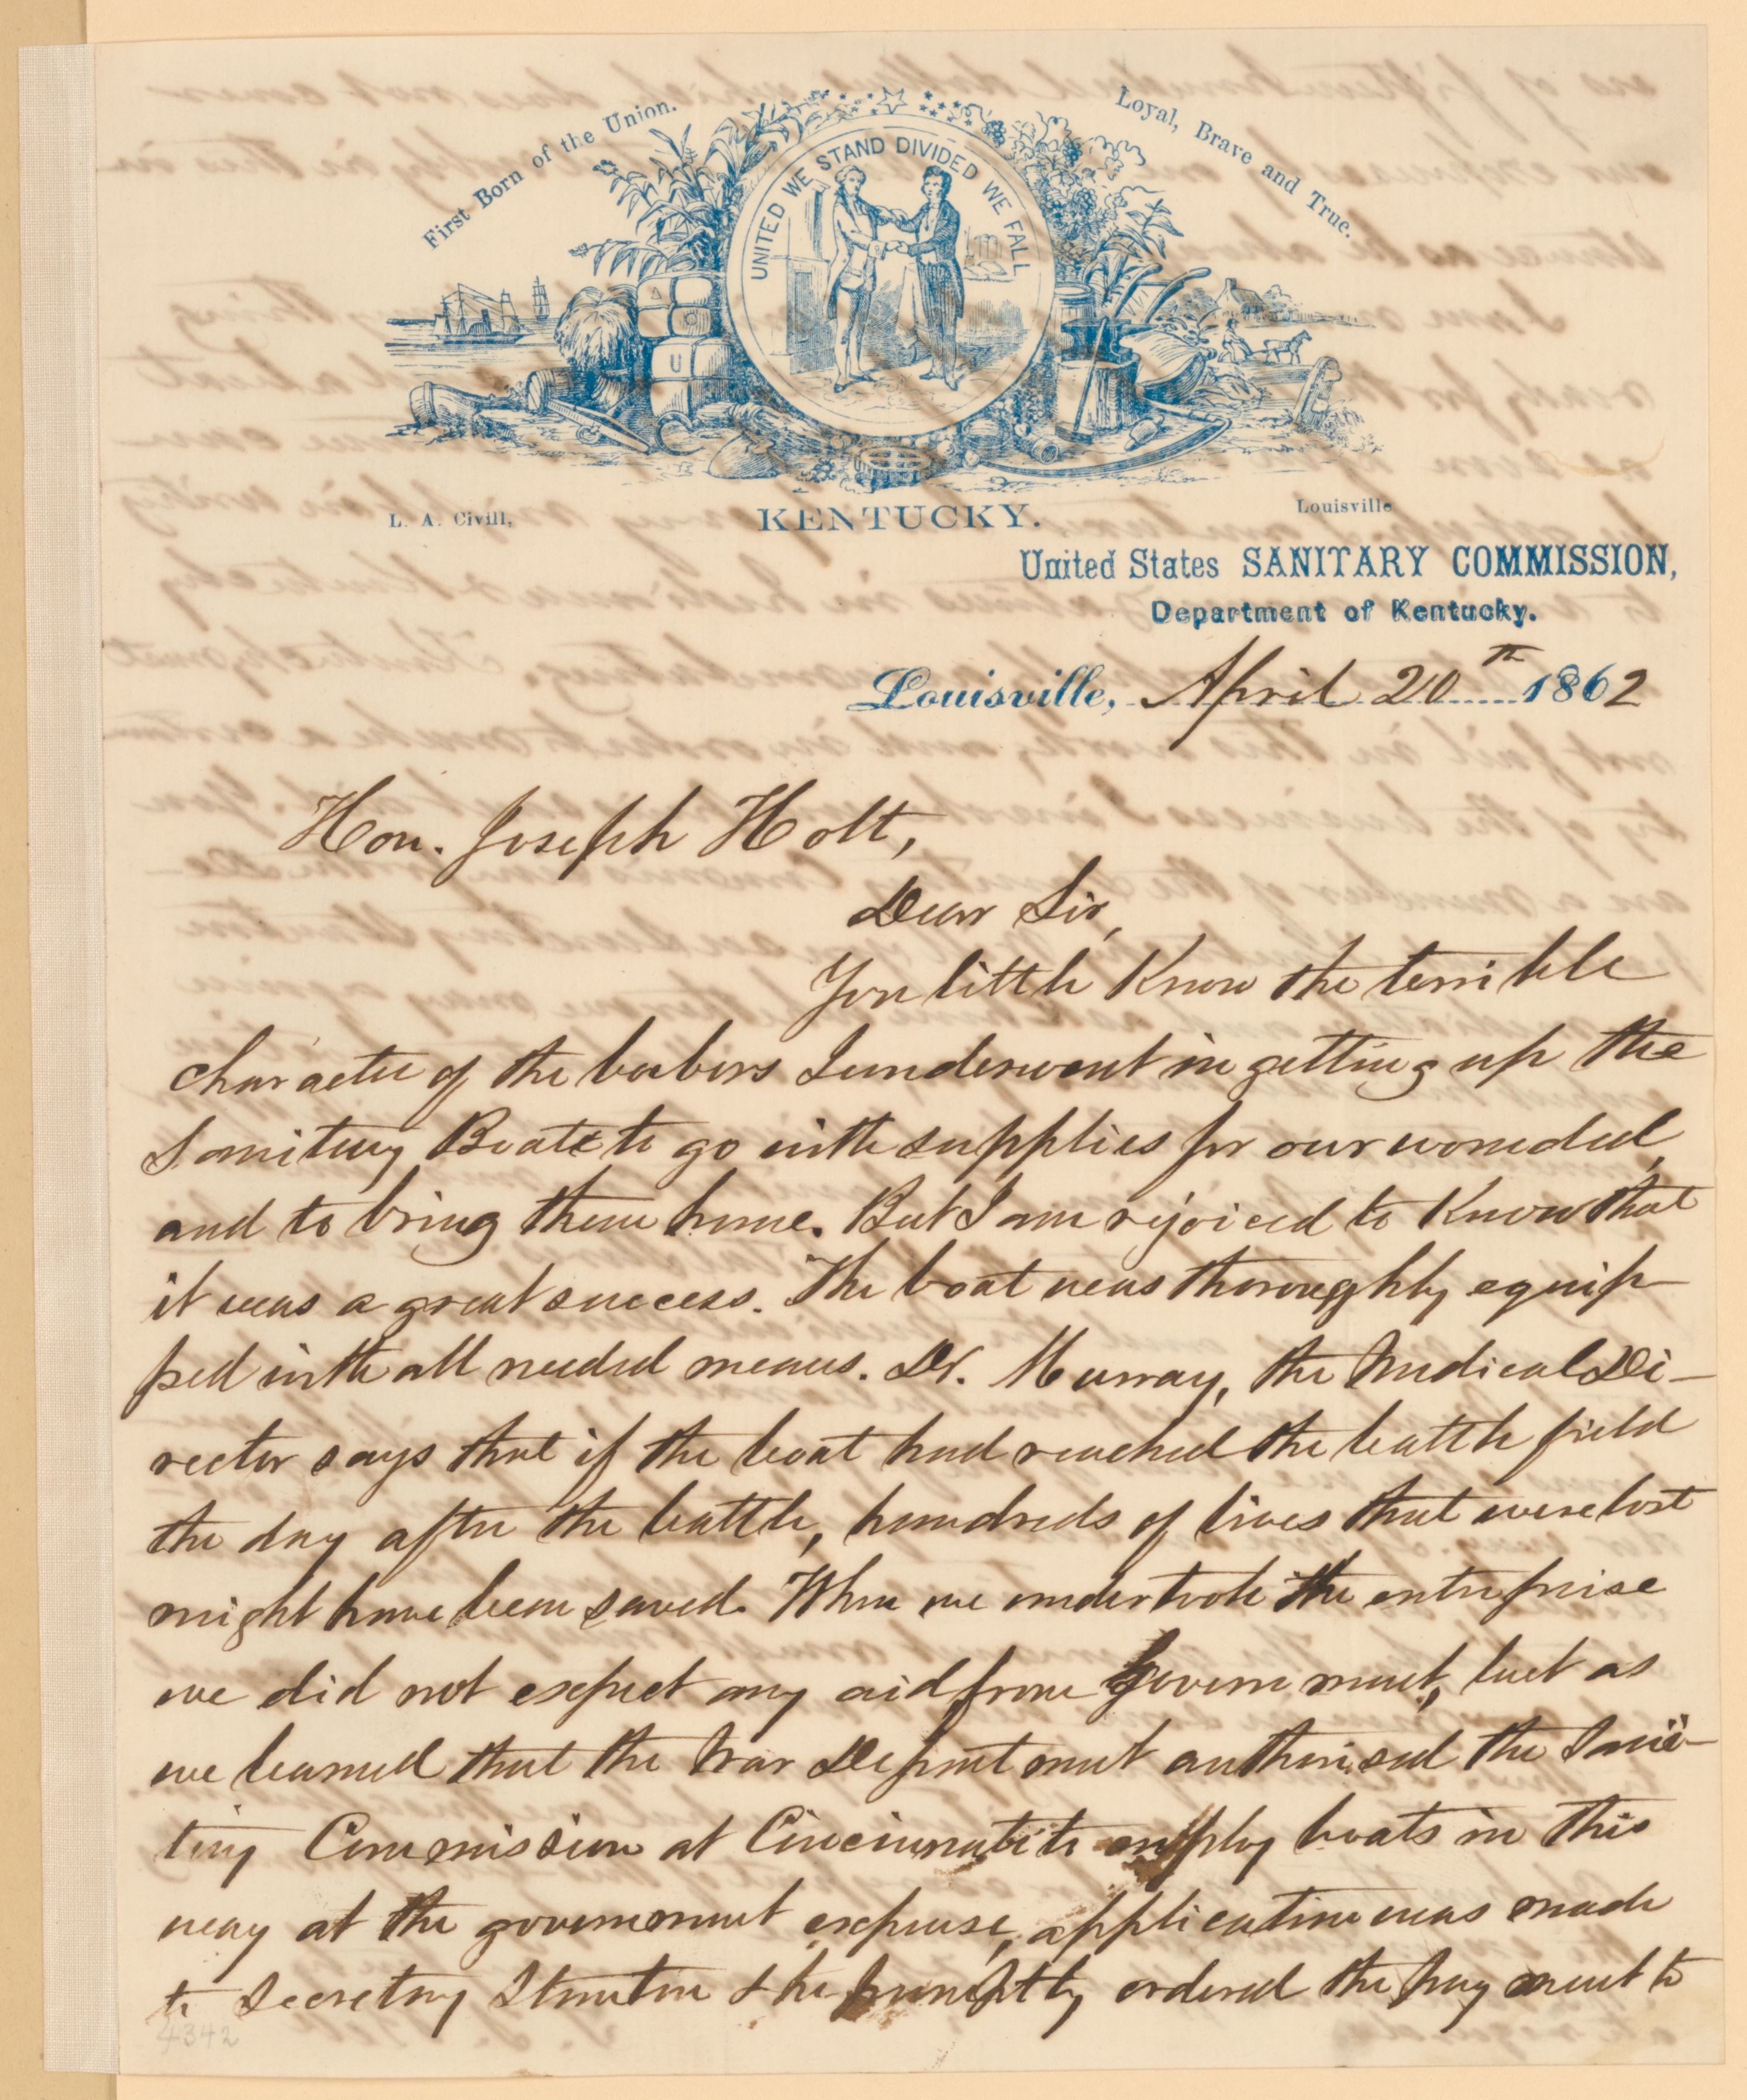 First Born of the Union.
Loyal, Brave and True.
UNITED WE STAND DIVIDED WE FALL
U
L. A. Civill,
KENTUCKY.
Louisville
United States SANITARY COMMISSION,
Department of Kentucky.
Louisville, April 20th 1862
Hon. Joseph Holt,
Dear Sir,
You little know the terrible
character of the labors I underwent in getting up the
Sanitary Boats to go with supplies for our wounded,
and to bring them home. But I am rejoiced to know that
it was a great success. The boat was thoroughly equip
ped with all needed means. Dr. Murray, the Medical Di-
rector says that if the boat had reached the battle field
the day after the battle, hundreds of lives that were lost
might have been saved. When we undertook the enterprise
we did not expect any aid from Government, but as
we learned that the War Department authorised the Sani-
tary Commission at Cincinnati to employ boats in this
way at the government expense, application was made
to Secretary Stanton & he promptly ordered the payment to
4342